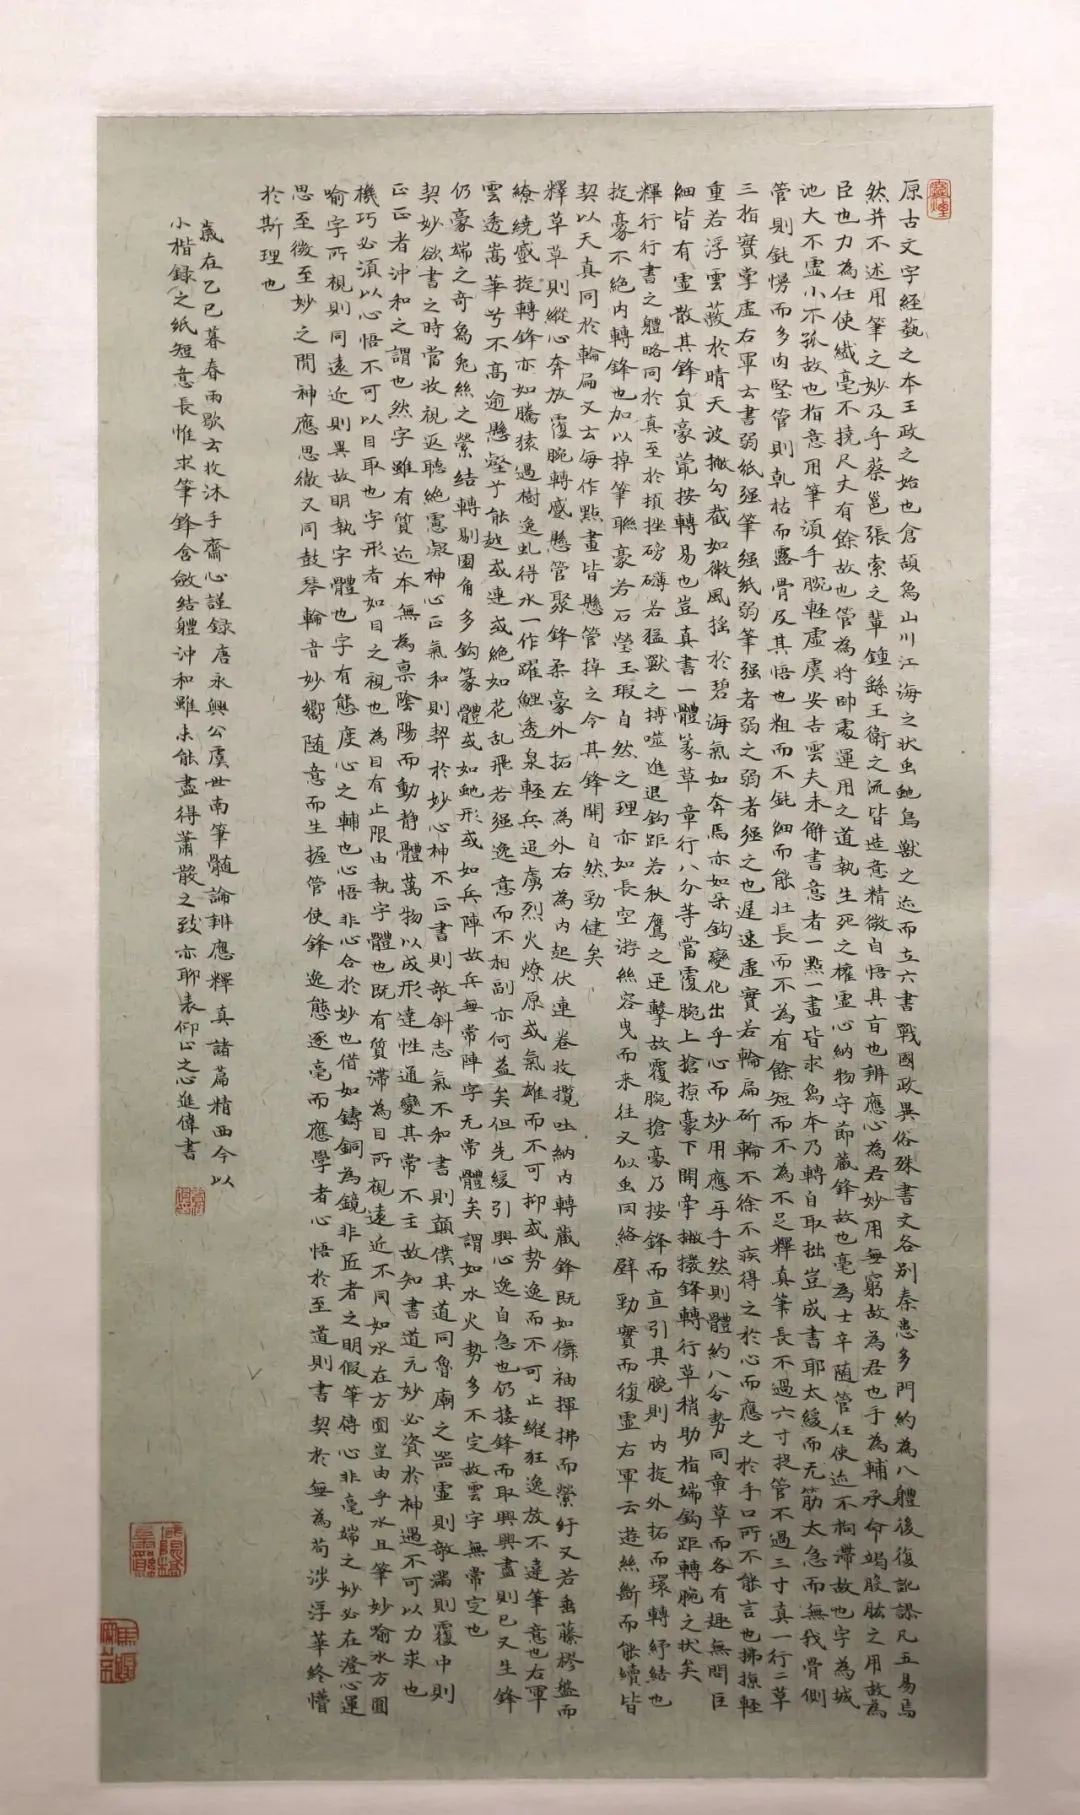 原古文字經藝之本王政之始也倉頡為山川江海之狀虫虵鳥獸之迹而立六書戰國政異俗殊書文各別秦患多門約為八體後復訛謬凡五易焉
然并不述用筆之妙及乎蔡邕張索之輩鍾繇王衛之流皆造意精微自悟其旨也辨應心為君妙用無窮故為君也手為輔承命竭股肱之用故為
臣也力為任使纖毫不撓尺丈有餘故也管為將帥處運用之道執生死之權虛心納物守節藏鋒故也毫為士卒随管任使迹不拘滯故也字為城
池大不虛小不孤故也指意用筆須手腕輕虛虞安吉雲夫未解書意者一點一畫皆求爲本乃轉自取拙豈成書耶太緩而无筋太急而無骨側
管則鈍慢而多肉堅管則乾枯而露骨及其悟也粗而不鈍細而能壯長而不為有餘短而不為不足釋真筆長不過六寸捉管不過三寸真一行二草
三指實掌虛右軍云書弱紙强筆强紙弱筆强者弱之弱者强之也遲速虛實若輪扁斫輪不徐不疾得之於心而應之於手口所不能言也拂掠輕
重若浮雲蔽於晴天波撇勾截如微風摇於碧海氣如奔馬亦如朵鈎變化出乎心而妙用應乎手然則體約八分勢同章草而各有趣無間巨
細皆有虛散其鋒負豪蕝按轉易也豈真書一體篆草章行八分等當覆腕上搶掠豪下開牽撇撥鋒轉行草稍助指端鈎距轉腕之狀矣
釋行行書之體略同於真至於頓挫磅礴若猛獸之搏噬進退鈎距若秋鷹之迅擊故覆腕搶豪乃按鋒而直引其腕則内旋外拓而環轉紓結也
旋豪不絕内轉鋒也加以掉筆聯豪若石瑩玉瑕自然之理亦如長空游絲容曳而来往又似虫网絡壁勁實而復虛右軍云遊絲斷而能續皆
契以天真同於輪扁又云每作點畫皆懸管掉之令其鋒開自然勁健矣
釋草草則縱心奔放覆腕轉蹙懸管聚鋒柔豪外拓左為外右為内起伏連卷收攬吐納内轉藏鋒既如儛袖揮拂而縈紆又若垂藤樛盤而
繚繞蹙旋轉鋒亦如騰猿過樹逸虬得水一作躍鯉透泉輕兵追虜烈火燎原或氣雄而不可抑或勢逸而不可止縱狂逸放不違筆意也右軍
雲透嵩華兮不高逾懸壑兮能越或連或絶如花乱飛若强逸意而不相副亦何益矣但先緩引興心逸自急也仍接鋒而取興興盡則已又生鋒
仍豪端之奇為兔絲之縈結轉剔圍角多鈎篆體或如虵形或如兵陣故兵無常陣字无常體矣謂如水火勢多不定故雲字無常定也
契妙欲書之時當收視返聽絶慮凝神心正氣和則契於妙心神不正書則欹斜志氣不和書則顛仆其道同魯廟之器虛則欹滿則覆中則
正正者沖和之謂也然字雖有質迹本無為稟陰陽而動静體萬物以成形達性通變其常不主故知書道元妙必資於神遇不可以力求也
機巧必須以心悟不可以目取也字形者如目之視也為目有止限由執字體也既有質滯為目所視遠近不同如水在方圓豈由乎水且筆妙喻水方圓
喻字所視則同遠近則異故明執字體也字有態度心之輔也心悟非心合於妙也借如鑄銅為鏡非匠者之明假筆傳心非毫端之妙必在澄心運
思至微至妙之間神應思徹又同鼓琴輪音妙嚮随意而生握管使鋒逸態逐毫而應學者心悟於至道則書契於無為苟涉浮華終懵
於斯理也
歲在乙巳暮春雨歇云收沐手齋心謹録唐永興公虞世南筆髓論辨應釋真諸篇精西今以
小楷録之紙短意長惟求筆鋒含斂結體沖和雖未能盡得蕭散之致亦聊表仰止之心進偉書